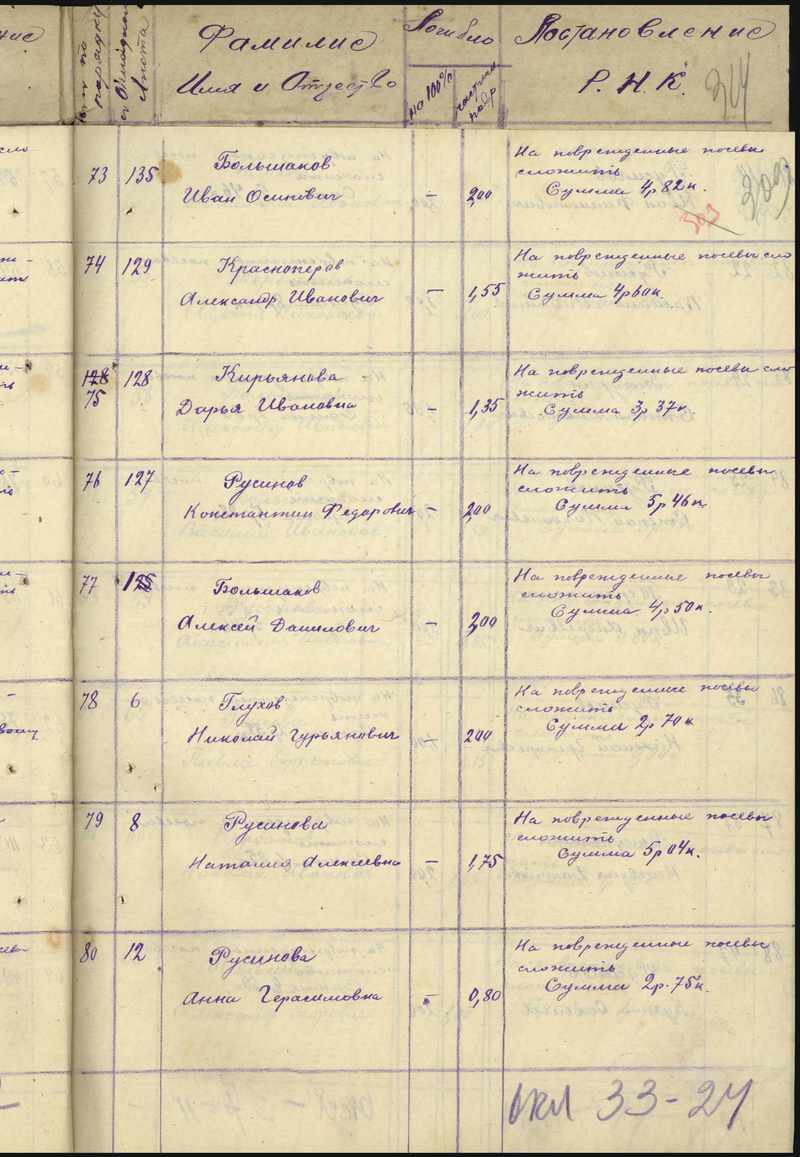 Фамилие
Имя и Отчество
Погибло
на 100%
частичн. повр
Постановление
Р. Н. К.
73 135 Большаков
Иван Осипович — 2,00
На поврежденные посевы
сложить
Сумма 4р 82к.
74 129 Красноперов
Александр Иванович — 1,55
На поврежденные посевы сло
жить
Сумма 4р60к.
128
75 128 Кирьянова
Дарья Ивановна — 1,35
На поврежденные посевы сло
жить
Сумма 3р 37к.
76 127 Русинов
Константин Федорович — 2,00
На поврежденные посевы
сложить
Сумма 5р 46к.
77 125 Большаков
Алексей Данилович — 2,00
На поврежденные посевы
сложить
Сумма 4р 50к.
78 6 Глухов
Николай Гурьянович — 200
На поврежденные посевы
сложить
Сумма 2р 70к
79 8 Русинова
Наталия Алексеевна — 1,75
На поврежденные посевы
сложить
Сумма 5р 04к.
80 12 Русинова
Анна Герасимовна — 0,80
На поврежденные посевы
сложить
Сумма 2р. 75к.
33-24